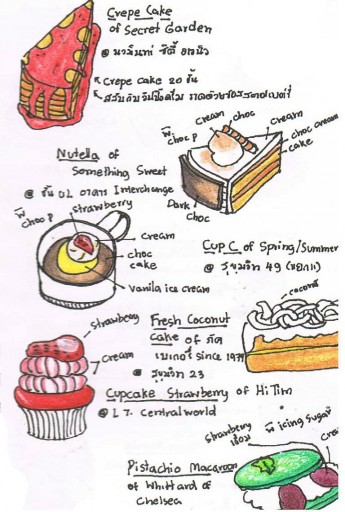 Crepe Cake
of Secret Garden
@ นวมินทร์ ซิตี้ อเวนิว
Crepe Cake 20 ชั้น
สลับกับวิปปิ้งครีม ราดด้วยซอสสตรอเบอรี่
cream
choc
cream
choc cream
cake
choc P
Dark
choc
Nutella of
Something Sweet
@ ชั้น B2 อาคาร Interchange
choc P
Strawberry
cream
choc
cake
Vanila ice cream
Cup C of Spring/Summer
@ สุขุมวิท 49 (แยก11)
coconut
Strawberry
Cream
Fresh Coconut
Cake of กัลปพฤกษ์
เบเกอรี่ Since 1979
@ สุขุมวิท 23
Cupcake Strawberry of HiTim
@ L 7. Centralworld
Strawberry
เชื่อม
มี icing Sugar
Crea
Pistachio Macaroon
of Whittard of
Chelsea